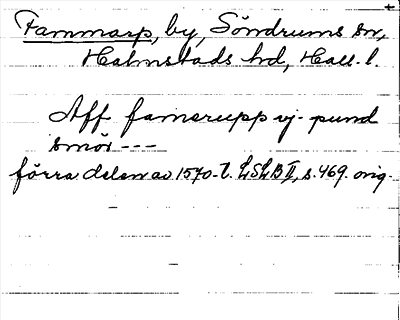 Fammarp, by, Söndrums sn,
Halmstads hd, Hall. l.
Aff famerupp vj. pund
smör ---
förra delen av 1570-t. LSLB II, s. 469. orig.